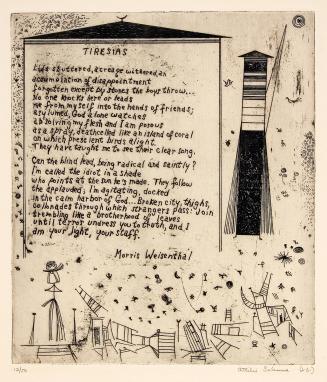 TIRESIAS
Life shuttered, acreage withered, an
accumulation of disappointment
forgotten except by stones the boys throw...
No one knocks here or leads
me from myself into the hands of friends;
asylumed, God alone watches
absolving my flesh and I am porous
as a spray, deathcelled like an island of coral
on which prescient birds alight.
They have taught me to see their clear song.
Can the blind lead, being radical and saintly?
I'm called the idiot in a shade
who points at the sun he's made. They follow
the applauded; I'm agitating, docked
in the calm harbor of God... Broken city, thighs,
colonnades through which strangers pass: Join
trembling like a brotherhood of leaves
until terror undress you to truth, and I
am your light, your staff.
Morris Weisenthal
12/50 Attilio Salemme